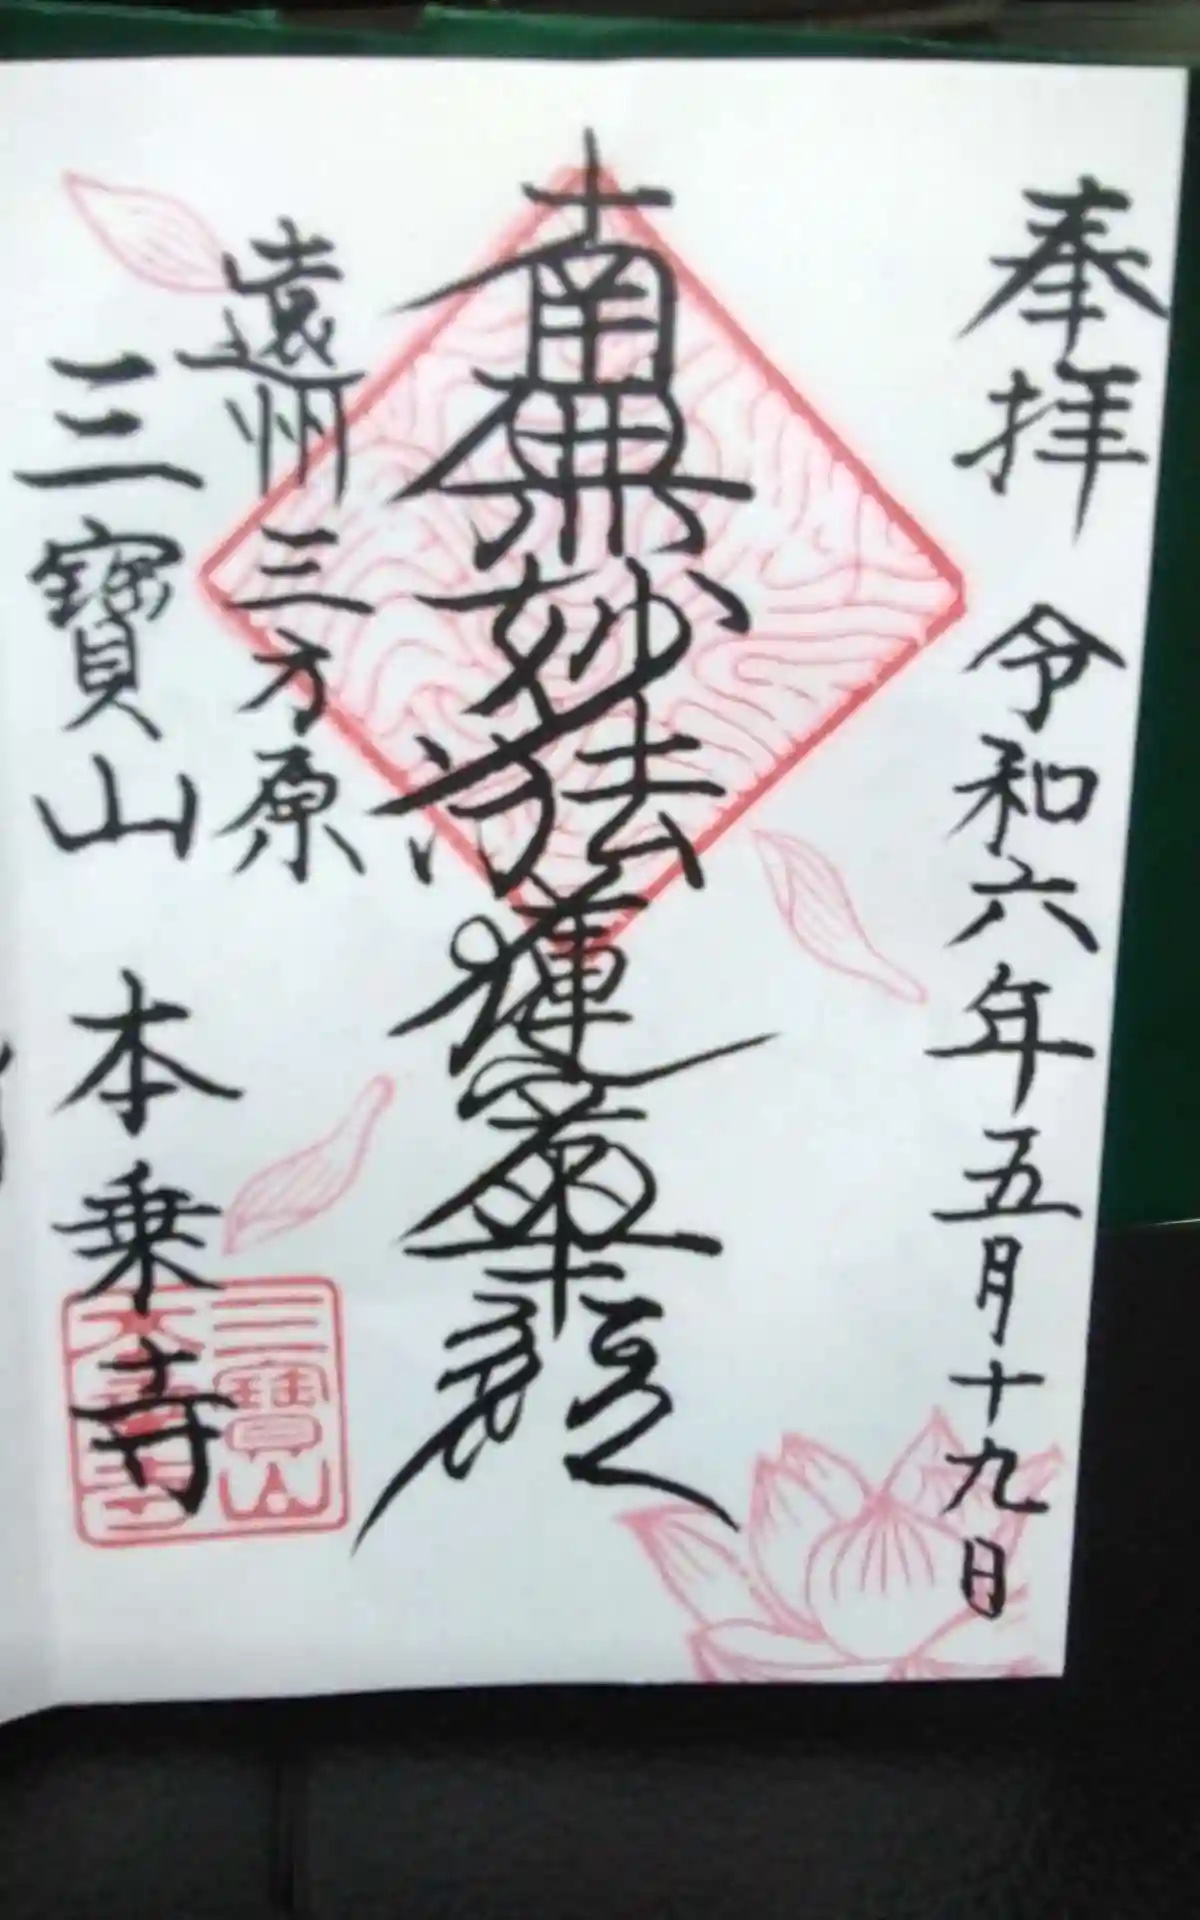 奉拝 令和六年五月十九日
南無妙法蓮華経
遠州三方原
三寶山 本乗寺
三寶山